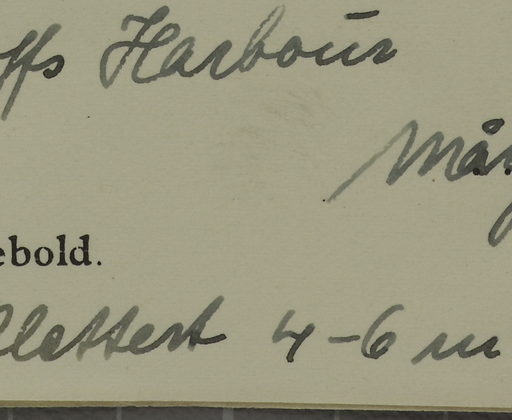 ffs Harbour
Mån
ebold.
Klattert 4-6 m